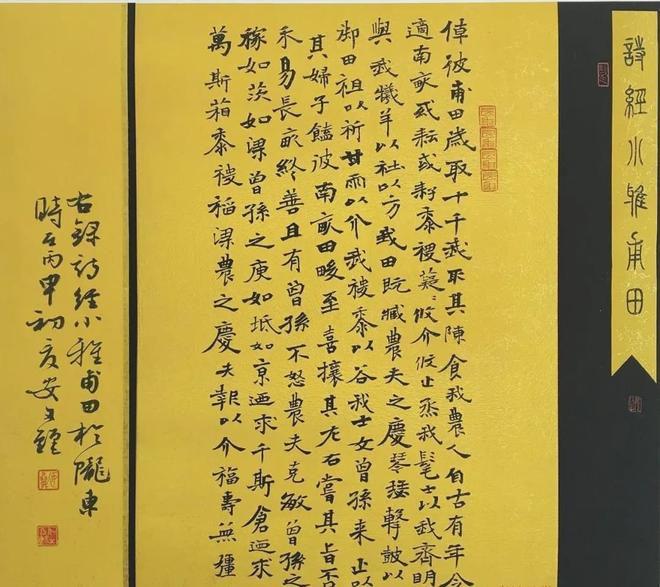 詩經小雅甫田
倬彼甫田歲取十千我取其陳食我農人自古有年今
適南畝或耘或耔黍稷薿〻攸介攸止烝我髦士以我齊明
與我犧羊以社以方我田既臧農夫之慶琴瑟擊鼓以
御田祖以祈甘雨以介我稷黍以谷我士女曾孫來止以
其婦子饁彼南畝田畯至喜攘其左右嘗其旨否
禾易長畝終善且有曾孫不怒農夫克敏曾孫之
稼如茨如梁曾孫之庾如坻如京迺求千斯倉迺求
萬斯箱黍稷稻粱農之慶夫報以介福壽無疆
右録詩經小雅甫田於隴東
時在丙申初夏安文